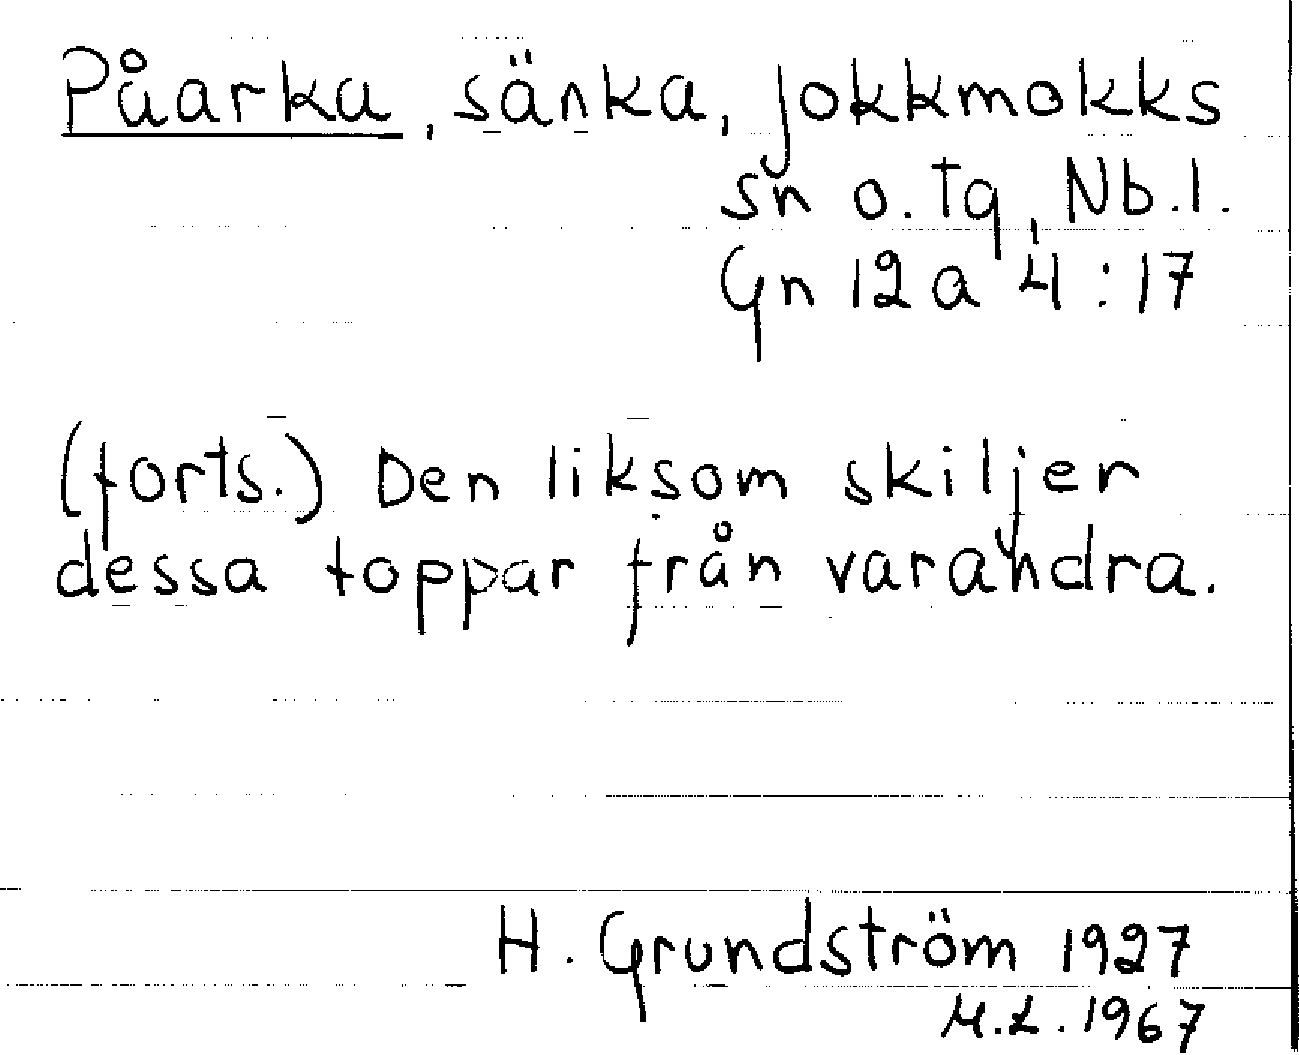 Påarka, sänka, Jokkmokks
sn o. tg, Nb. l.
Gn 12 a 4:17
(forts.) Den liksom skiljer
dessa toppar från varandra.
H. Grundström 1927
M.L. 1967